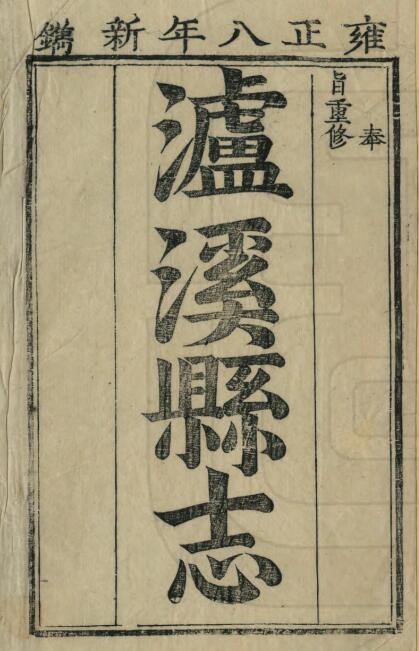 雍正八年新鐫
奉
旨重修
瀘溪縣志